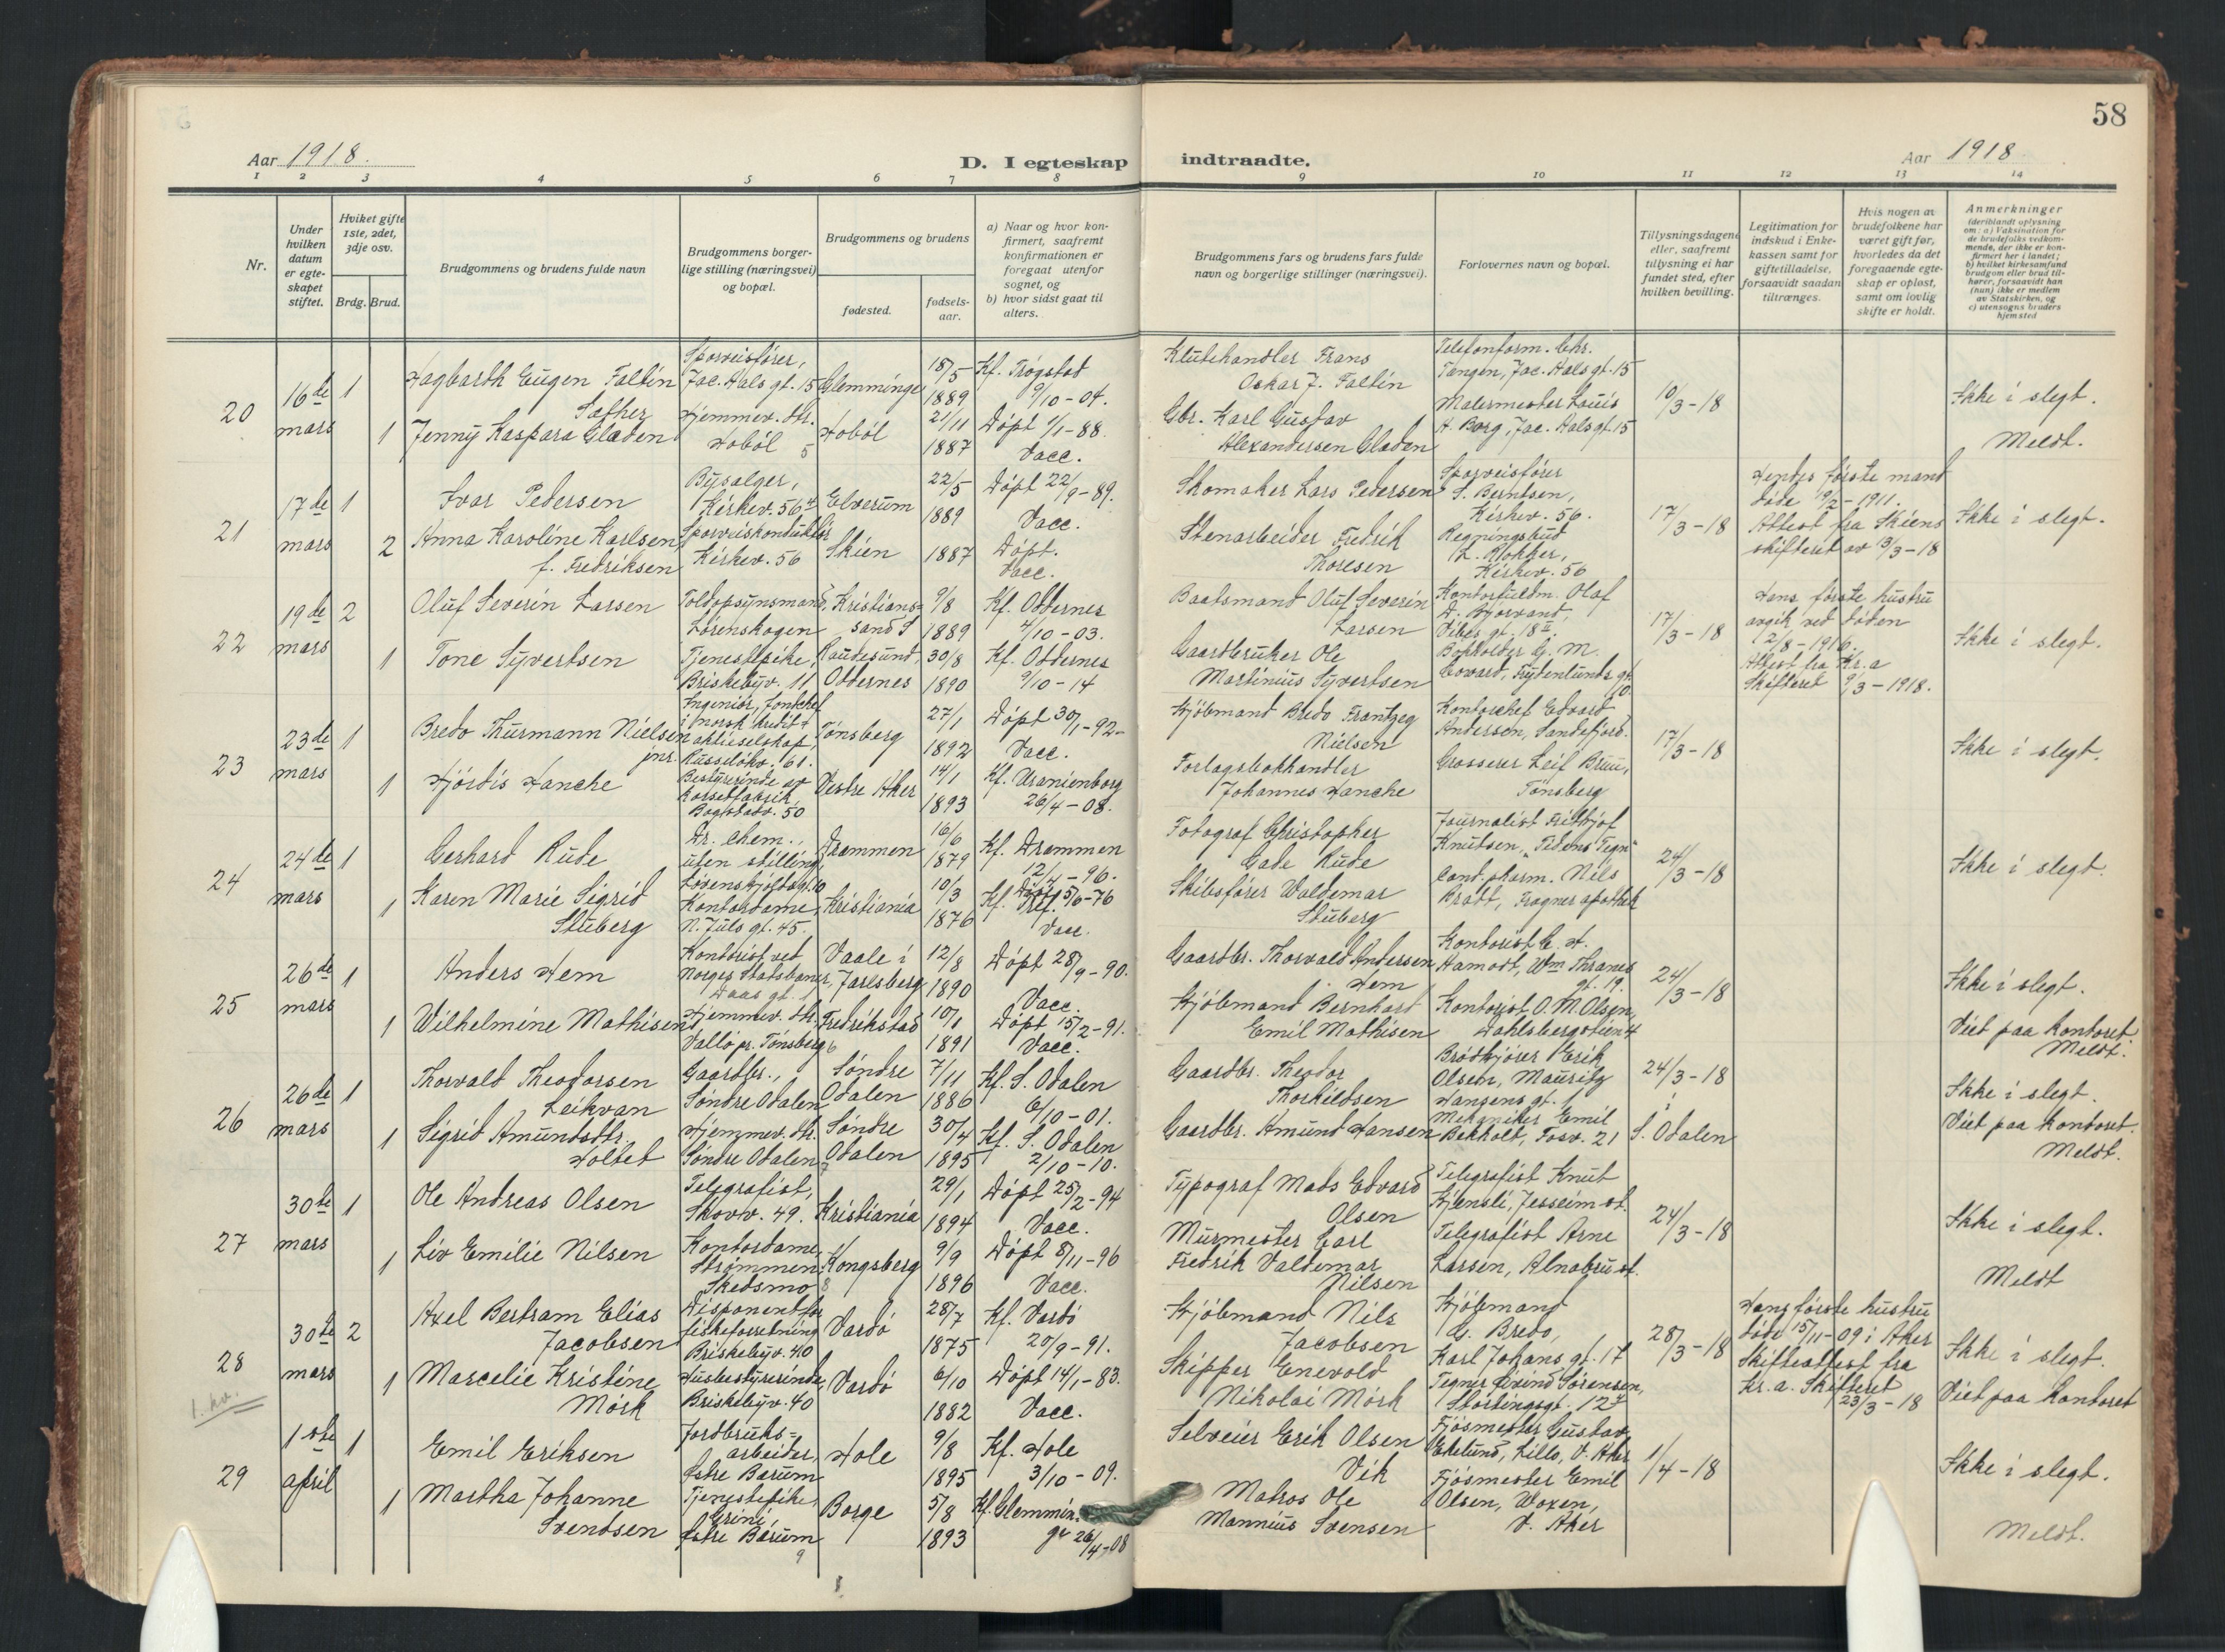 58
Aar 1918.
D. I egteskap indtraadte.
Aar 1918
1 2 3 4 5 6 7 8 9 10 11 12 13 14
Nr.
Under hvilken datum er egteskapet stiftet.
Hviket gifte 1ste, 2det, 3dje osv.
Brdg. Brud.
Brudgommens og brudens fulde navn
Brudgommens borgerlige stilling (næringsvei) og bopæl.
Brudgommens og brudens
fødested.
fødselsaar.
a) Naar og hvor konfirmert, saafremt konfirmationen er foregaat utenfor sognet, og
b) hvor sidst gaat til alters.
Brudgommens fars og brudens fars fulde navn og borgerlige stillinger (næringsvei).
Forlovernes navn og bopæl.
Tillysningsdagene eller, saafremt tillysning ei har fundet sted, efter hvilken bevilling.
Legitimation for indskud i Enkekassen samt for giftetilladelse, forsaavidt saadan tiltrænges.
Hvis nogen av brudefolkene har været gift før, hvorledes da det foregaaende egteskap er opløst, samt om lovlig skifte er holdt.
Anmerkninger
(deriblandt oplysning om: a) Vaksination for de brudefolks vedkommende, der ikke er konfirmert her i landet; b) hvilket kirkesamfund brudgom eller brud tilhører, forsaavidt han (hun) ikke er medlem av Statskirken, og c) utensogns bruders hjemsted
20
16de mars
1
Hagbarth Eugen Faltin
Sporveisfører, Jac. Aals gt. 15
Glemminge
18/5 1889
Kf. Trøgstad 9/10-04.
Klutehandler Frans Oskar J. Faltin
Telefonform. Chr. Tangen, Jac. Aals gt. 15
10/3-18
Ikke i slegt.
1
Jenny Kaspara Sæther Gladen
Hjemmev. dtr. Hobøl 5
Hobøl
21/11 1887
Døpt 1/1-88. Vacc.
Gbr. Karl Gustav Alexandersen Gladen
Malermester Louis A. Borg, Jac. Aals gt. 15
Meldt.
21
17de mars
1
Ivar Pedersen
Bysælger, Kirkev. 56
Elverum
22/5 1889
Døpt 22/9-89. Vacc.
Skomaker Lars Pedersen
Sporveisfører S. Berntsen, Kirkev. 56.
17/3-18
Hendes første mand døde 19/2-1911. Attest fra Skiens skifteret av 13/3-18
Ikke i slegt.
2
Anna Karoline Karlsen f. Fredriksen
Sporveiskonduktør Kirkev. 56
Skien
1887
Døpt. Vacc.
Stenarbeider Fredrik Thoresen
Regningsbud Kirkev. 56
22
19de mars
2
Oluf Severin Larsen
Toldopsynsmand, Lørenskogen
Kristianssand S
9/8 1889
Kf. Oddernes 4/10-03.
Baatsmand Oluf Severin Larsen
Kontorfuldm. Olaf A. Bjorvand, Vibes gt. 18
17/3-18
Hans første hustru avgik ved døden 12/8-1916. Attest fra Kr.a Skifteret 9/3-1918.
Ikke i slegt.
1
Tone Syvertsen
Tjenestepike, Briskebyv. 11
Randesund, Oddernes
30/8 1890
Kf. Oddernes 9/10-14
Gaardbruker Ole Martinius Syvertsen
Bokholder G. M. Edward, Frydenlunds gt. 10
23
23de mars
1
Bredo Thurmann Nielsen jnr.
Ingeniør, fondchef i norsk kredit aktieselskap, Russeløkv. 61.
Tønsberg
27/1 1892
Døpt 30/1-92- Vacc.
Kjøbmand Bredo Frantzeg Nielsen
Kontorchef Edvard Andersen, Sandefjord.
17/3-18
Ikke i slegt.
1
Hjørdis Hanche
Bestyrerinde av korsetfabrik, Bogstadv. 50
Vestre Aker
14/1 1893
Kf. Uranienborg 26/4-08.
Forlagsbokhandler Johannes Hanche
Grosserer Leif Bruu, Tønsberg
24
24de mars
1
Gerhard Rude
Dr. chem., uten stilling, Løvenskjoldsgt. 10
Drammen
16/6 1879
Kf. Drammen 12/4-96.
Fotograf Christopher Gade Rude
Journalist Fridthjof Knutsen, "Tidens Tegn"
24/3-18
Ikke i slegt.
1
Karen Marie Sigrid Stuberg
Kontordame, N. Juls gt. 45.
Kristiania
10/3 1876
Døpt 5/6-76 Kf. Vacc.
Skibsfører Waldemar Stuberg
Cand. pharm. Nils Bratt, Frogner apothek
25
26de mars
1
Anders Hem
Kontorist ved Norges Statsbaner, Daas gt. 1
Vaale i Jarlsberg
12/8 1890
Døpt 28/9-90. Vacc.
Gaardbr. Thorvald Andersen Hem
Kontorist C. H. Aamodt, Wm Thranes gt. 19.
24/3-18
Ikke i slegt.
1
Wilhelmine Mathisen
Hjemmev. dtr., Vallø pr. Tønsberg 6
Fredrikstad
10/1 1891
Døpt 15/2-91. Vacc.
Kjøbmand Bernhart Emil Mathisen
Kontorist O. M. Olsen, Dahlsbergstien 4
Viet paa kontoret. Meldt.
26
26de mars
1
Thorvald Theodorsen Leikvan
Gaardbr., Søndre Odalen
Søndre Odalen
7/11 1886
Kf. S. Odalen 6/10-01.
Gaardbr. Theodor Thorkildsen
Brødkjører Erik Olsen, Mauritz Hansens gt. 1
24/3-18 i S. Odalen
Ikke i slegt.
1
Sigrid Amundsdtr. Holtet
Hjemmev. dtr. Søndre Odalen 7
Søndre Odalen
30/4 1895
Kf. S. Odalen 2/10-10.
Gaardbr. Amund Hansen
Mekaniker Emil Bekholt, Fosv. 21
Viet paa kontoret. Meldt.
27
30te mars
1
Ole Andreas Olsen
Telegrafist, Skovv. 49.
Kristiania
29/1 1894
Døpt 25/2-94 Vacc.
Typograf Mads Edvard Olsen
Telegrafist Knut Kjensli, Jessheim st.
24/3-18
Ikke i slegt.
1
Liv Emilie Nilsen
Kontordame, Strømmen, Skedsmo 8
Kongsberg
9/9 1896
Døpt 8/11-96 Vacc.
Murmester Carl Fredrik Valdemar Nilsen
Telegrafist Arne Larsen, Alnabru st.
Meldt
28
30te mars
2
Axel Bertram Elias Jacobsen
Disponent for fiskeforretning Briskebyv. 40
Vardø
28/7 1875
Kf. Vardø 20/9-91.
Kjøbmand Nils Jacobsen
Kjøbmand G. Bredo, Karl Johans gt. 17
28/3-18
Hans første hustru døde 15/11-09 i Aker Skifteattest fra Kr.a. Skifteret 23/3-18
Ikke i slegt.
1. kv.
1
Marcelie Kristine Mörk
Husbestyrerinde, Briskebyv. 40
Vardø
6/10 1882
Døpt 14/1-83. Vacc.
Skipper Enevold Nikolai Mörk
Tegner Eivind Sørensen, Stortingsgt. 12
Viet paa kontoret
29
1ste april
1
Emil Eriksen
Jordbruksarbeider, Østre Bærum
Hole
9/8 1895
Kf. Hole 3/10-09.
Selveier Erik Olsen Vik
Fjøsmester Gustav Ekelund, Lillo, V. Aker
1/4-18
Ikke i slegt.
1
Martha Johanne Svendsen
Tjenestepike, Grini, Østre Bærum 9
Borge
5/8 1893
Kf. Glemminge 26/4-08
Matros Ole Mannius Svensen
Fjøsmester Emil Olsen, Woxen, V. Aker
Meldt.